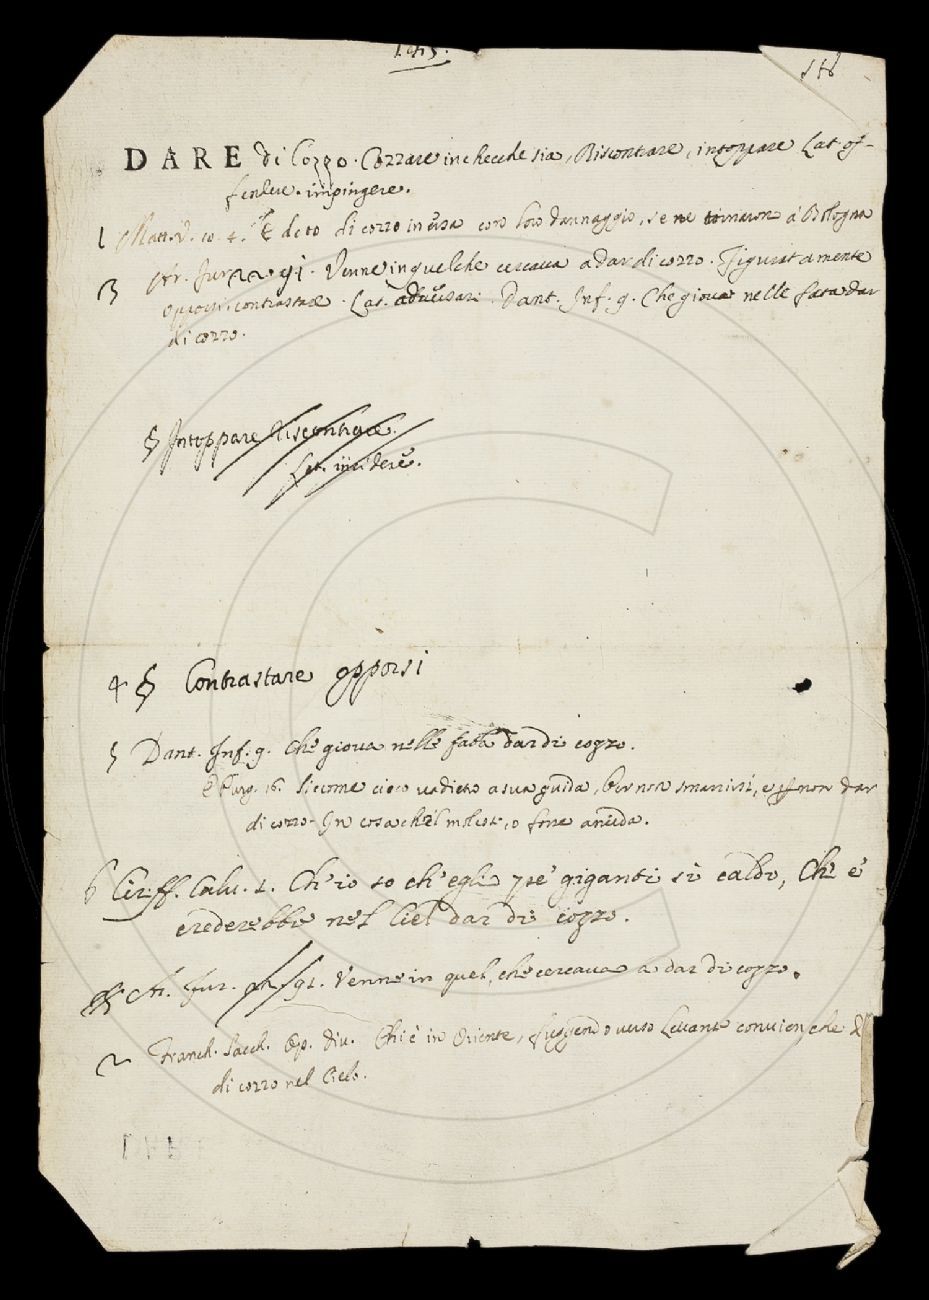 DARE di Cozzo. Cozzare in checche sia, Riscontrare, intoppare Lat. of-
fendere. impingere.
1 Matt. V. 10. 4. E deto di cozzo in essa con loro dannaggio, se ne tornaron a Bologna
3 Ar. Fur. 91. Venne in quel che cercava a dar di cozzo. Figuratamente
opporsi. contrastare. Lat. adversari. Dant. Inf. 9. Che giova nelle fata dar
di cozzo.
§ Intoppare Riscontrare.
Lat. incidere.
4 § Contrastare opporsi
5 Dant. Inf. 9. Che giova nelle fata dar di cozzo.
E Purg. 16. Sicome cieco va dietro a sua guida, Per non smarrirsi, e per non dar
di cozzo In cosa che'l molesti, o forse ancida.
6 Ciriff. Calv. 1. Ch'io so ch'egli è pe' giganti sì caldo, Che e'
crederebbe nel Ciel dar di cozzo.
Ar. Fur. 91. Venne in quel, che cercava a dar di cozzo.
2 Franch. Sacch. Op. div. Chi è in Oriente, fuggendo verso Levante convien che d
di cozzo nel Cielo.